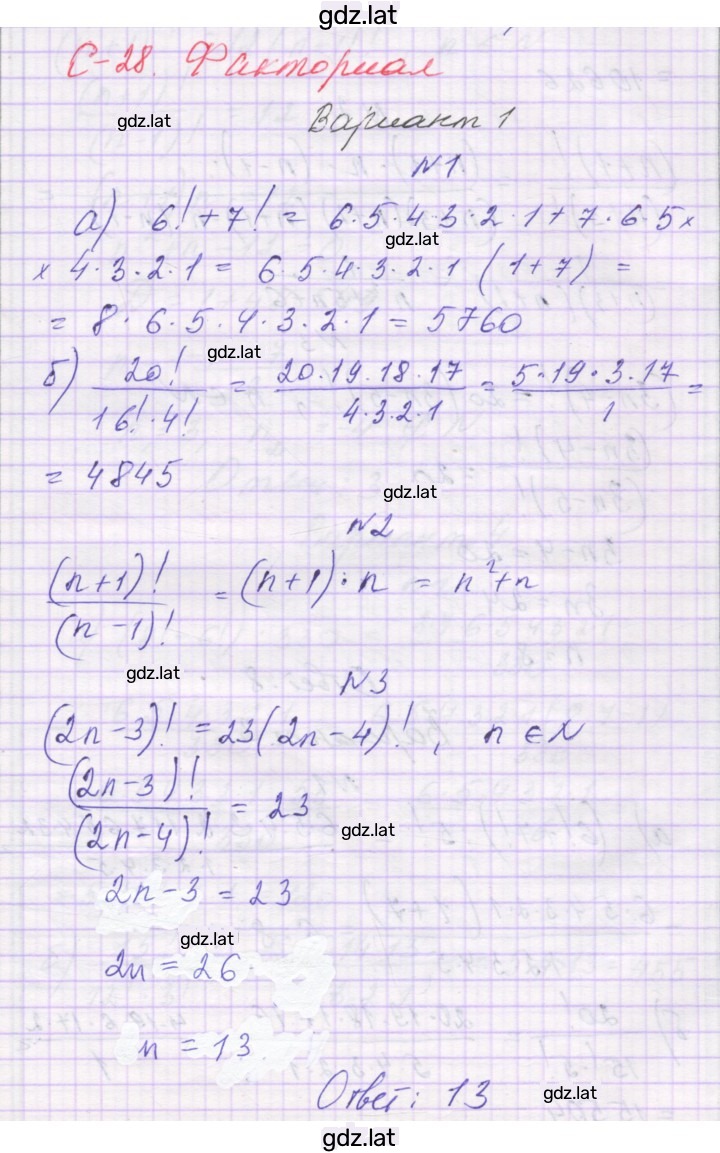 gdz.lat
С-28. Факториал
gdz.lat
Вариант 1
№1
а) 6! + 7! = 6·5·4·3·2·1 + 7·6·5×
gdz.lat
× 4·3·2·1 = 6·5·4·3·2·1 (1+7) =
= 8·6·5·4·3·2·1 = 5760
gdz.lat
б) 20!/(16!·4!) = (20·19·18·17)/(4·3·2·1) = (5·19·3·17)/1 =
= 4845
gdz.lat
№2
(n+1)!/(n-1)! = (n+1)·n = n²+n
gdz.lat
№3
(2n-3)! = 23(2n-4)!, n ∈ N
(2n-3)!/(2n-4)! = 23
gdz.lat
2n-3 = 23
gdz.lat
2n = 26
n = 13
Ответ: 13
gdz.lat
gdz.lat